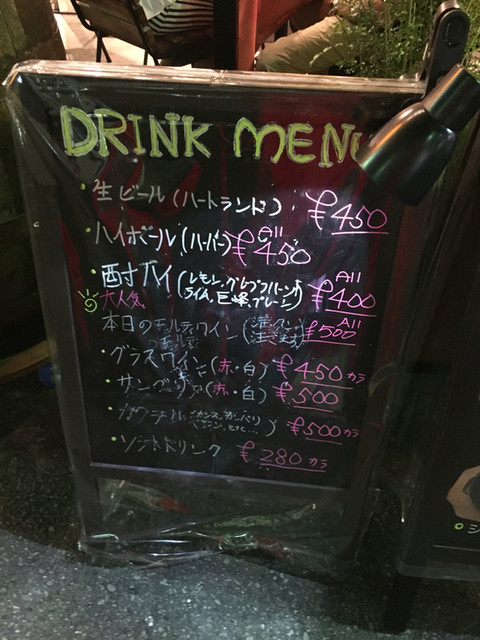 DRINK MENU
・生ビール(ハートランド) ¥450
・ハイボール(ハーパー) All ¥450
・酎ハイ(レモン、グレープフルーツ、ライム、巨峰、プレーン) All ¥400
大人気
本日のモルディワイン All ¥500
・グラスワイン(赤・白) ¥450カラ
・サングリア(赤・白) ¥500
・カクテル ¥500カラ
・ソフトドリンク ¥280カラ
シ